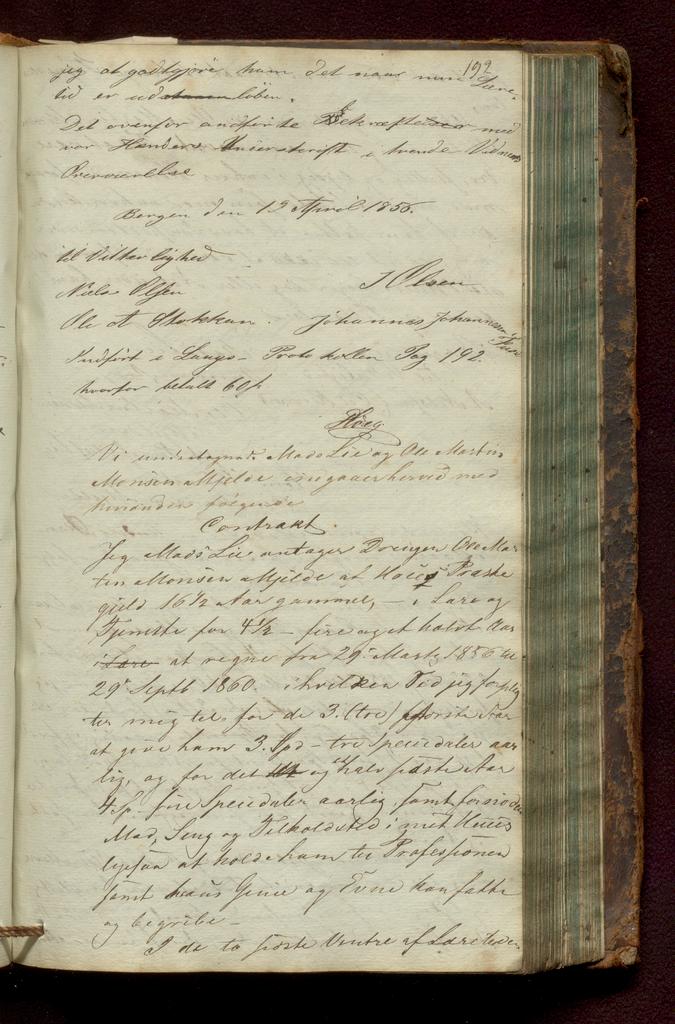 192
jeg at godtgjøre ham det naar min Lære-
tid er udløben.
Det ovenfor anførte Bekræftes med
vor Hænders Underskrift i tvende Vidners
Overværelse
Bergen den 12 April 1856.
til Vitterlighed
Niels Olsen J Olsen
Ole A Stokken. Johannes Johannesen
Indført i Laugs-Protokollen Pag 192.
hvorfor betalt 60 ſ
Høeg
Vi undertegnede Mads Lie og Ole Martin
Monsen Mjelde indgaaer herved med
hinanden følgende
Contrakt
Jeg Mads Lie antager Drengen Ole Mar-
tin Monsen Mjelde af Houg Præste
gjeld 16 1/2 Aar gammel, – i Lære og
Tjeneste for 4 1/2 – fire og et halvt Aar
i Lære at regne fra 29 Marts 1856 til
29 Septb 1860. i hvilken Tid jeg forplig
ter mig til for de 3. (tre) første Aar
at give ham 3. Spd – tre Speciedaler aar
lig, og for det og halv sidste Aar
4 Sp. fire Speciedaler aarlig, samt fornøden
Mad, Seng og Tilholdsted i mit Huus
ligesaa at holde ham til Professionen
samt hans Genie og Evne kan fatte
og begribe –
I de to sidste Vintre af Læretiden